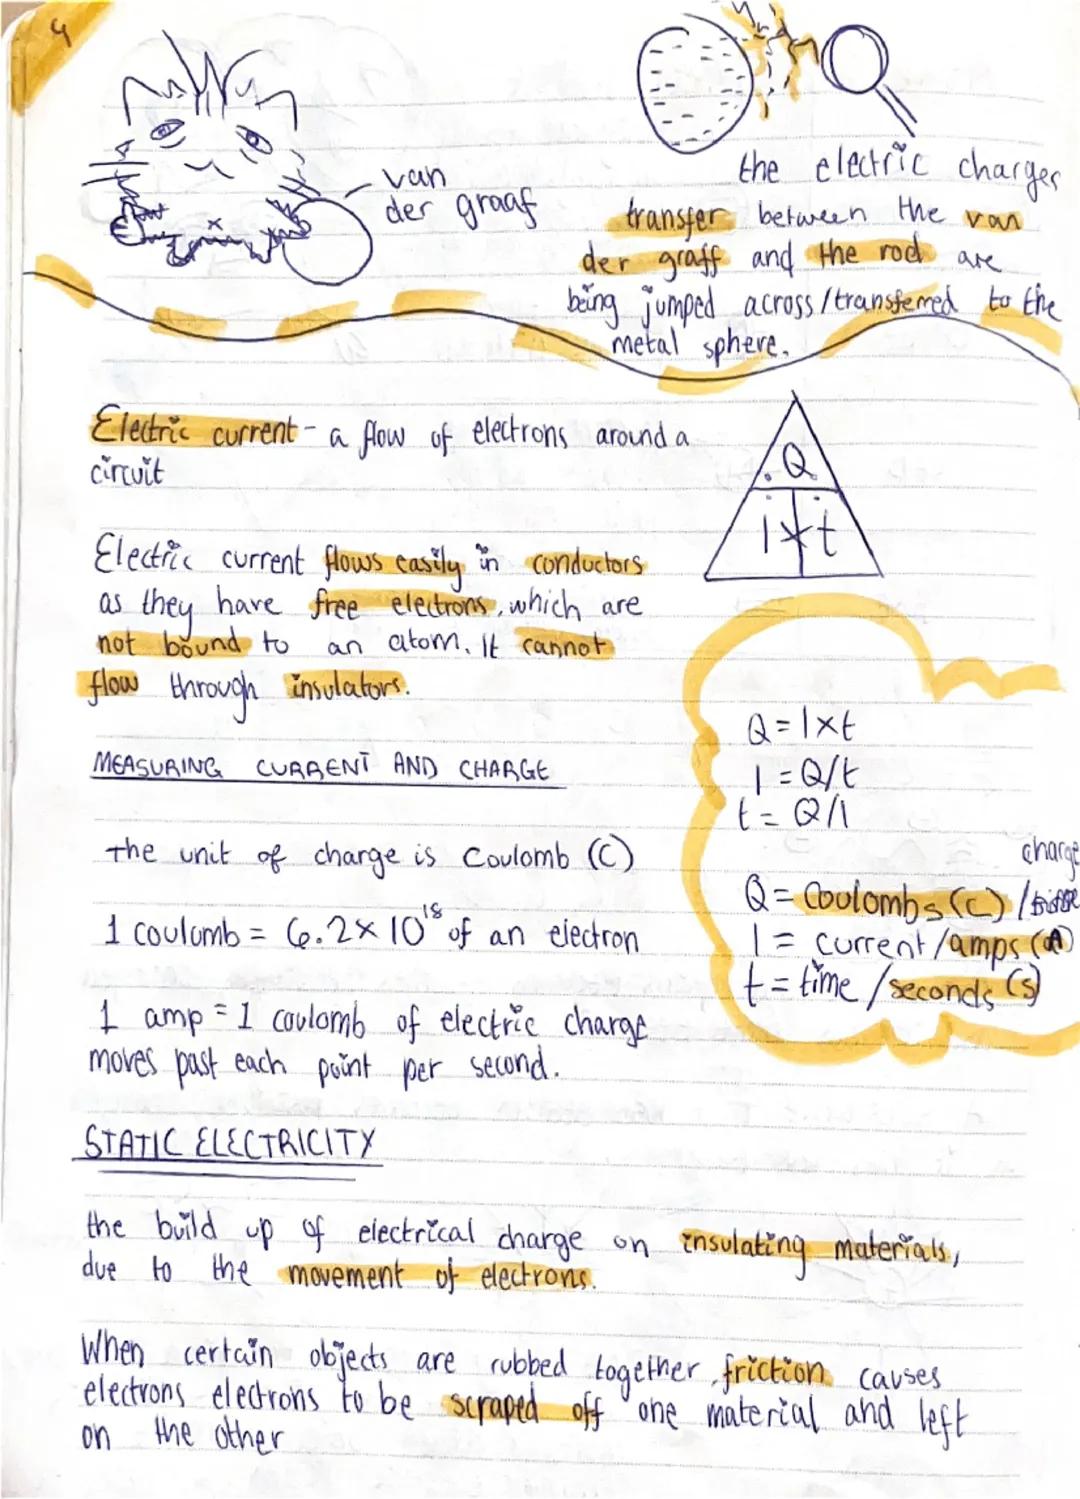 4
van
der graaf
the electric charges
transfer between the van
der graff and the rod are
being jumped across/transferred to the
metal sphere.
Electric current - a flow of electrons around a
circuit
Q
I × t
Electric current flows easily in conductors
as they have free electrons, which are
not bound to an atom. It cannot
flow through insulators.
Q = I × t
I = Q/t
t = Q/I
MEASURING CURRENT AND CHARGE
the unit of charge is Coulomb (C)
charge
Q = Coulombs (C) /
I = current/amps (A)
t = time/seconds (s)
1 coulomb = 6.2 × 10¹⁸ of an electron
1 amp = 1 coulomb of electric charge
moves past each point per second.
STATIC ELECTRICITY
the build up of electrical charge on insulating materials,
due to the movement of electrons.
When certain objects are rubbed together, friction causes
electrons electrons to be scraped off one material and left
on the other